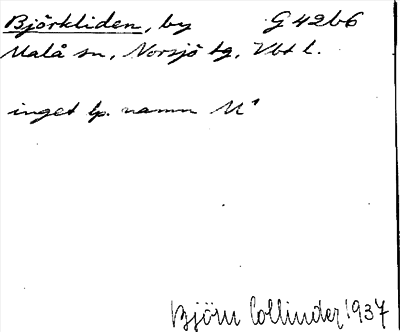 Björkliden, by G 42b6
Malå sn, Norsjö tg, Vbt l.
inget lp. namn M¹
Björn Collinder 1937